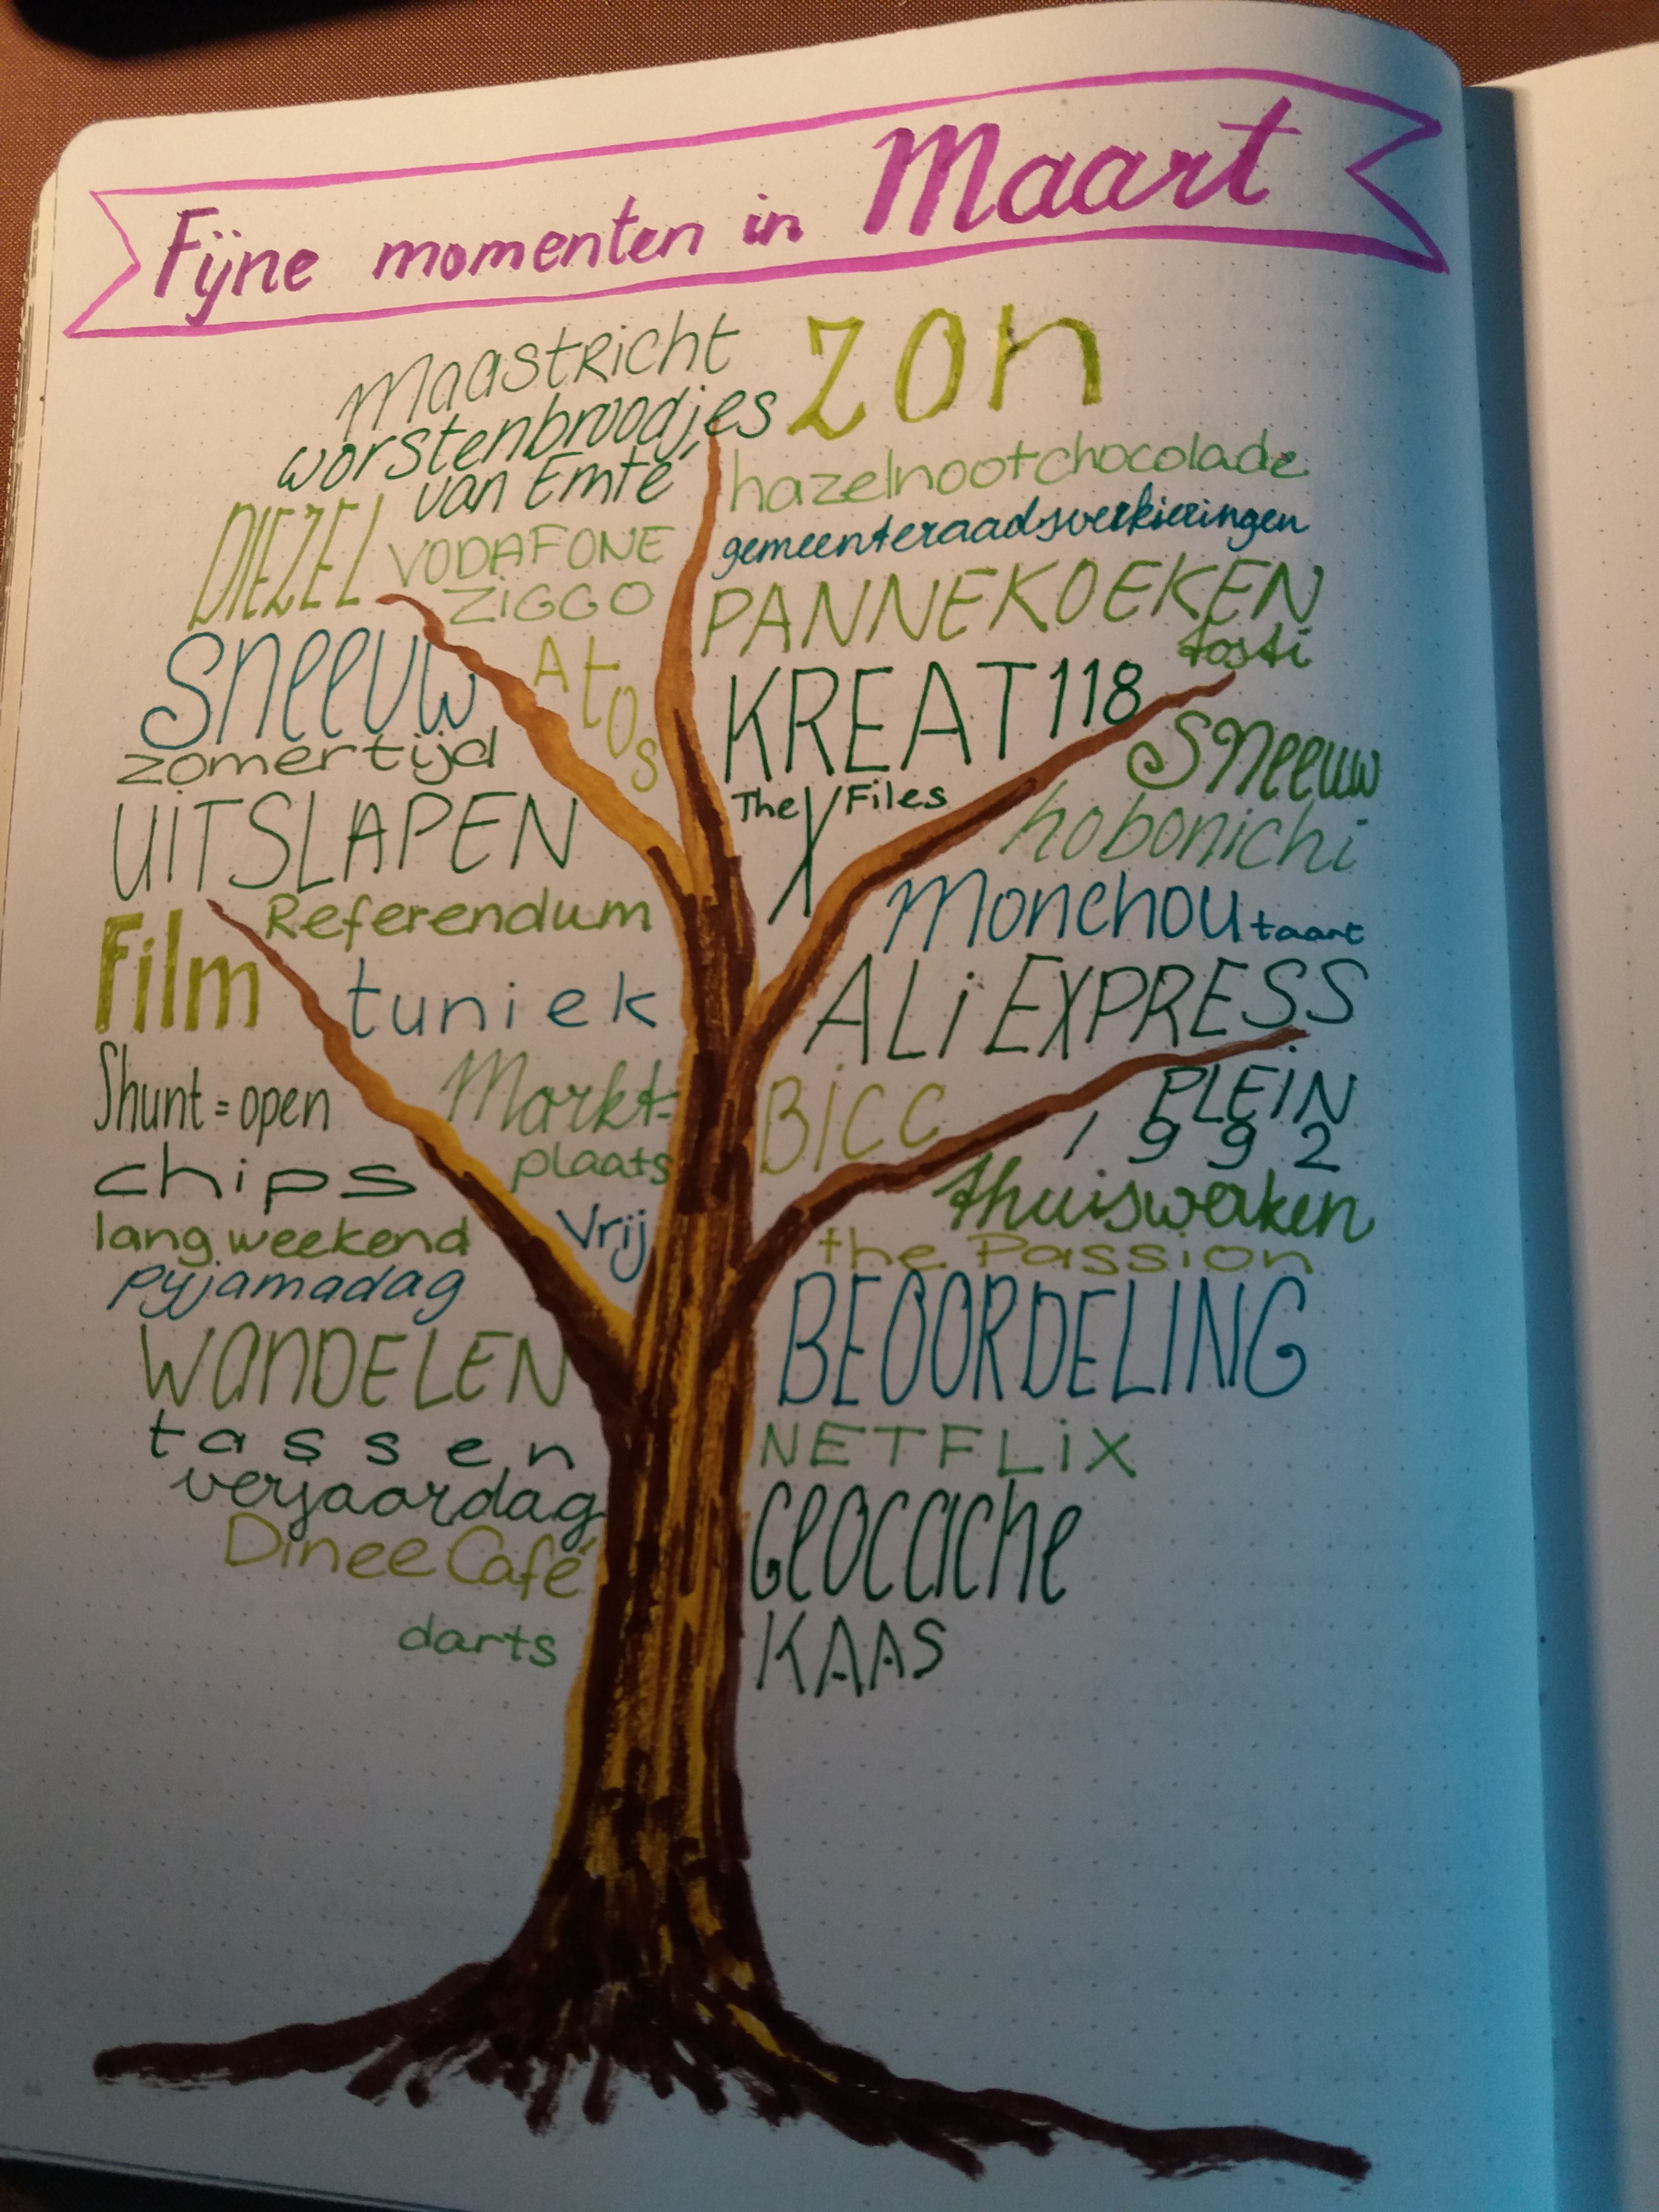 Fijne momenten in Maart
Maastricht
worstenbroodjes
van Emté
DIEZEL
VODAFONE
ZiGGO
Sneeuw
Atos
zomertijd
UITSLAPEN
Referendum
Film
tuniek
Shunt = open
Markt-
plaats
chips
lang weekend
Vrij
pyjamadag
WANDELEN
tassen
verjaardag
Dinee Café
darts
zon
hazelnootchocolade
gemeenteraadsverkiezingen
PANNEKOEKEN
tosti
KREAT118
The X Files
Sneeuw
hobonichi
Monchou taart
ALiEXPRESS
BiCC
PLEiN
1992
thuiswerken
the Passion
BEOORDELING
NETFLiX
Geocache
KAAS